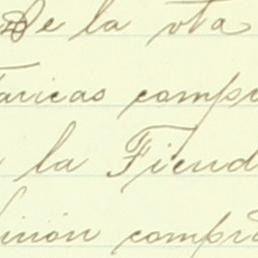 De la ota
aricas comp
la Fiend
inión compr